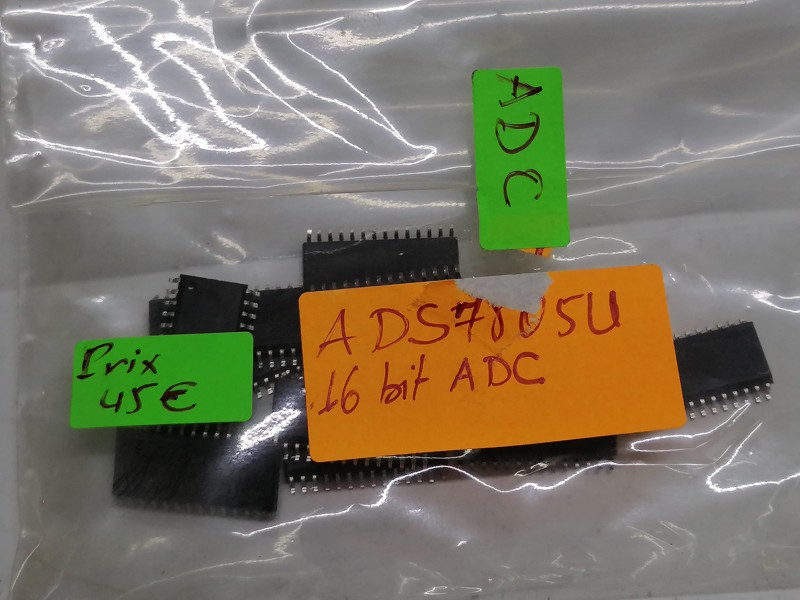 ADC
ADS7805U
16 bit ADC
Prix
45€